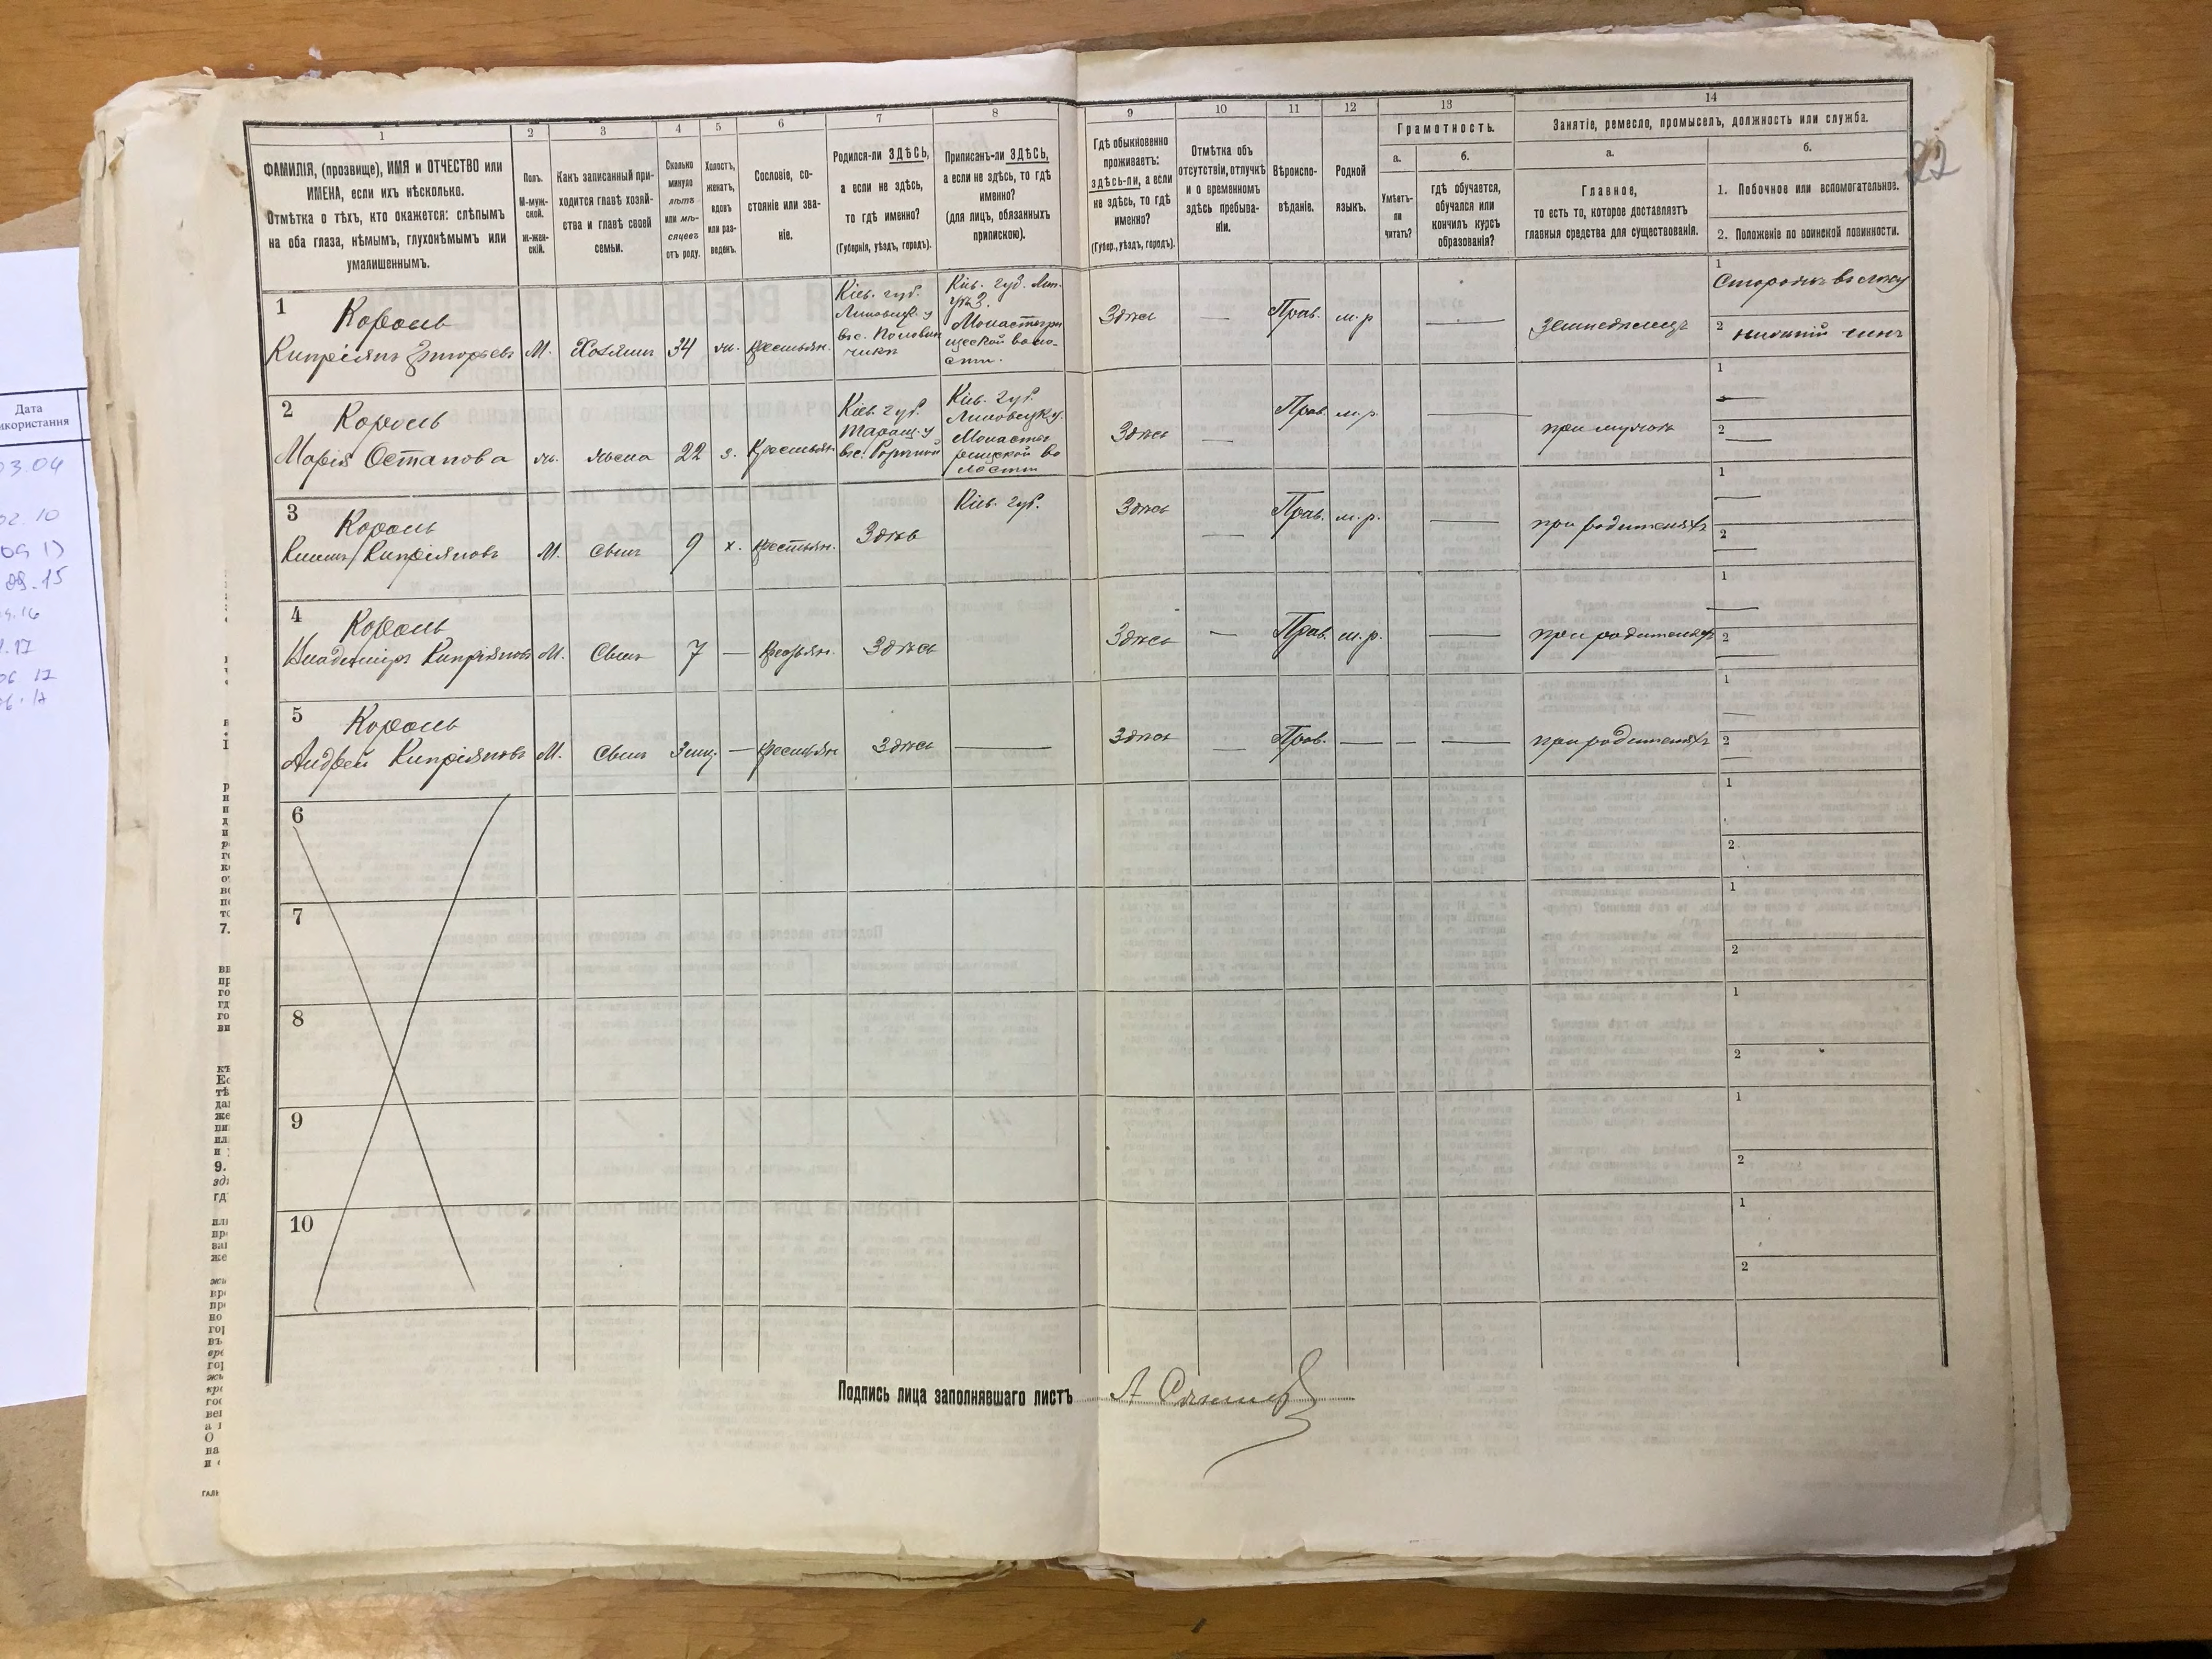 1
2
3
4
5
6
7
8
9
10
11
12
13
14
ФАМИЛІЯ, (прозвище), ИМЯ и ОТЧЕСТВО или
ИМЕНА, если ихъ нѣсколько.
Отмѣтка о тѣхъ, кто окажется: слѣпымъ
на оба глаза, нѣмымъ, глухонѣмымъ или
умалишеннымъ.
Полъ.
М-муж-
ской.
Ж-жен-
скій.
Какъ записанный при-
ходится главѣ хозяй-
ства и главѣ своей
семьи.
Сколько
минуло
лѣтъ
или мѣ-
сяцевъ
отъ роду.
Холостъ,
женатъ,
вдовъ
или раз-
веденъ.
Сословіе, со-
стояніе или зва-
ніе.
Родился-ли ЗДѢСЬ,
а если не здѣсь,
то гдѣ именно?
(Губернія, уѣздъ, городъ).
Приписанъ-ли ЗДѢСЬ,
а если не здѣсь, то гдѣ
именно?
(для лицъ, обязанныхъ
припискою).
Гдѣ обыкновенно
проживаетъ:
здѣсь-ли, а если
не здѣсь, то гдѣ
именно?
(Губер., уѣздъ, городъ).
Отмѣтка объ
отсутствіи, отлучкѣ
и о временномъ
здѣсь пребыва-
ніи.
Вѣроиспо-
вѣданіе.
Родной
языкъ.
Грамотность.
а.
Умѣетъ-
ли
читать?
б.
гдѣ обучается,
обучался или
кончилъ курсъ
образованія?
Занятіе, ремесло, промыселъ, должность или служба.
а.
Главное,
то есть то, которое доставляетъ
главныя средства для существованія.
б.
1. Побочное или вспомогательное.
2. Положеніе по воинской повинности.
22
1
Король
Кипріянъ Григорьевъ М. Хозяинъ 34 ж. крестьян.
Кіев. губ.
Липовецк. у
вс. Половин
чикѣ
Кіев. губ. Лип.
уѣз.
Монастыри
щеской воло-
сти.
Здѣсь — Прав. м.р — земледѣлецъ
1 Сторожъ в лѣсу
2 нижній чинъ
2
Король
Марія Остапова ж. жена 22 з. Крестьян.
Кіев. губ.
Таращ. у
вс.
Кіев. губ.
Липовецк у.
Монасты
рищской во
лости
Здѣсь — Прав. м.р. — при мужѣ
1 —
2 —
3
Король
Кипріяновъ М. сынъ 9 х. крестьян. Здѣсь Кіев. губ.
Здѣсь — Прав. м.р. — при родителяхъ
1 —
2 —
4
Король
Владимиръ Кипріяновъ М. Сынъ 7 — крестьян. Здѣсь
Здѣсь — Прав. м.р. — при родителяхъ
1 —
2 —
5
Король
Андрей Кипріяновъ М. Сынъ 3 мц. — крестьян Здѣсь —
Здѣсь — Прав. — — — при родителяхъ
1 —
2 —
6
1
2
7
1
2
8
1
2
9
1
2
10
1
2
Подпись лица заполнявшаго листъ
Дата
икористання
03.04
02.10